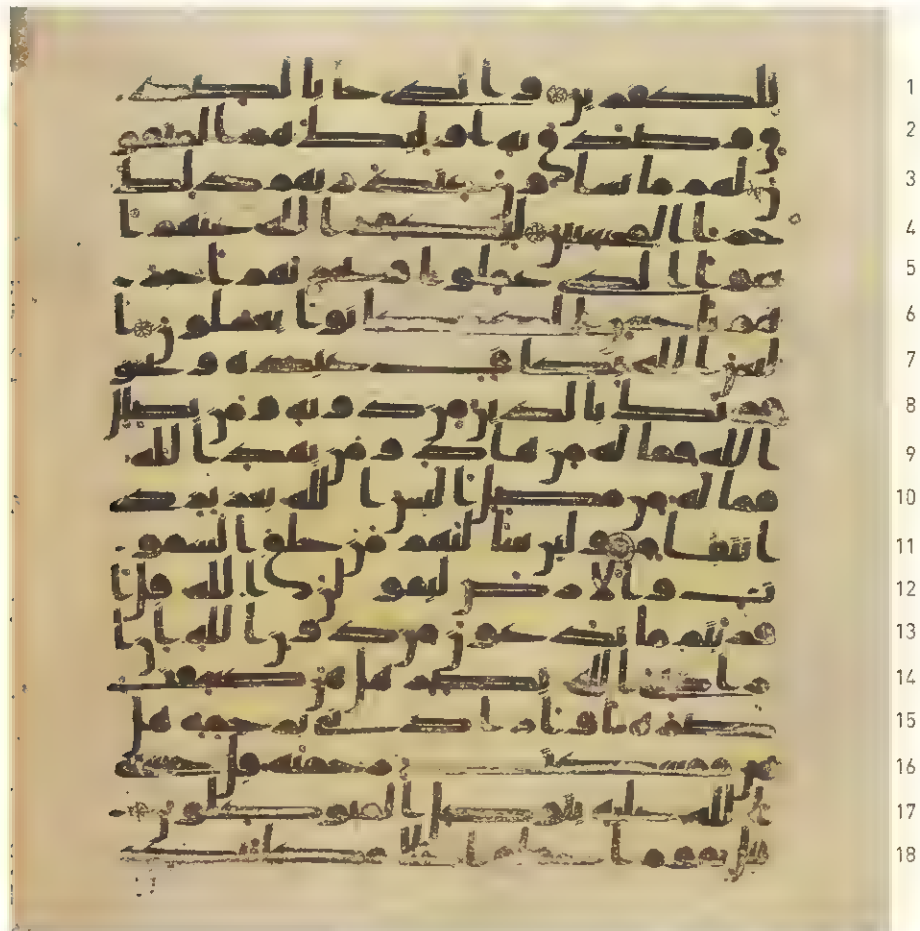 للكفرين والذي جا بالصد 1
ق وصدق به اوليك هم المتقو 2
ن لهم ما يشاون عند ربهم ذلك 3
جزا المحسنين ليكفر الله عنهم ا 4
سوا الذي عملوا ويجزيهم ا 5
جرهم باحسن الذي كانوا يعملون ا 6
ليس الله بكاف عبده ويخو 7
فونك بالذين من دونه ومن يضلل 8
الله فما له من هاد ومن يهد الله 9
فما له من مضل اليس الله بعزيز ذي 10
انتقام ولين سالتهم من خلق السمو 11
ت والارض ليقولن الله قل ا 12
فريتم ما تدعون من دون الله ان ا 13
رادني الله بضر هل هن كشفت 14
ضره او ارادني برحمة هل 15
هن ممسكت رحمته قل حسبي 16
الله عليه يتوكل المتوكلون 17
قل يقوم اعملوا على مكنتكم 18